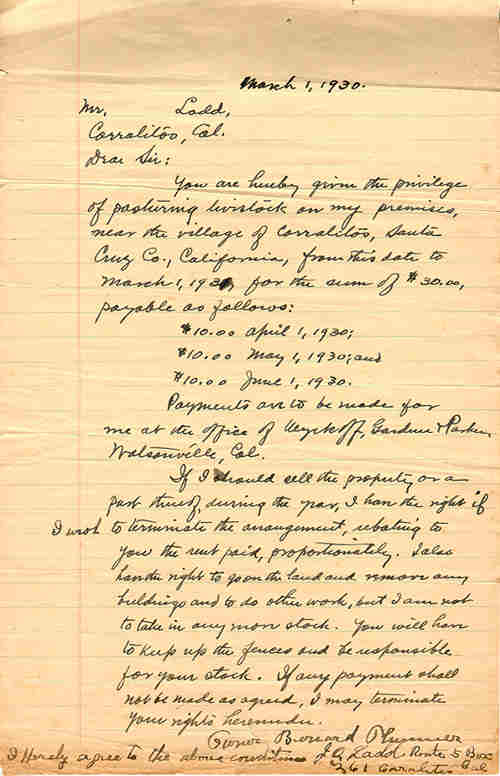 March 1, 1930.
Mr. Ladd,
Corralitos, Cal.
Dear Sir:
You are hereby given the privilege
of pasturing livestock on my premises,
near the village of Corralitos, Santa
Cruz Co., California, from this date to
March 1, 1931, for the sum of $30.00,
payable as follows:
$10.00 April 1, 1930;
$10.00 May 1, 1930; and
$10.00 June 1, 1930.
Payments are to be made for
me at the office of Wyckoff, Gardner & Parker,
Watsonville, Cal.
If I should sell the property, or a
part thereof, during the year, I have the right if
I wish to terminate the arrangement, rebating to
you the rent paid, proportionately. I also
have the right to go on the land and remove any
buildings and to do other work, but I am not
to take in any more stock. You will have
to keep up the fences and be responsible
for your stock. If any payment shall
not be made as agreed, I may terminate
your rights hereunder.
Owner Bernard Plummer
I Hereby agree to the above conditions J A Ladd Route 5 Box
261 Corralitos Cal